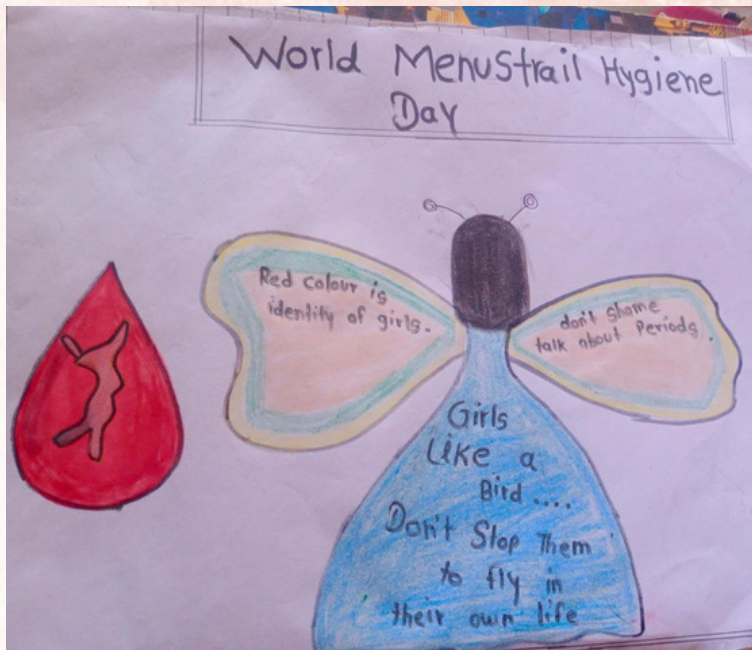 World Menustrail Hygiene
Day
Red colour is
identity of girls.
don't shame
talk about Periods.
Girls
Like a
Bird....
Don't Stop Them
to fly in
their own life